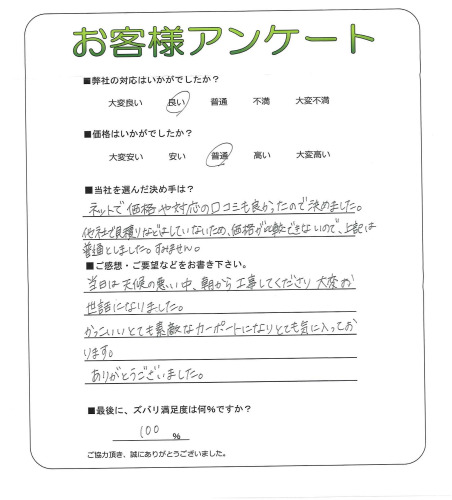 お客様アンケート
■弊社の対応はいかがでしたか?
大変良い 良い 普通 不満 大変不満
■価格はいかがでしたか?
大変安い 安い 普通 高い 大変高い
■当社を選んだ決め手は?
ネットで価格や対応の口コミも良かったので決めました。
他社で見積りなどはしていないため、価格が比較できないので、上記は
普通としました。すみません。
■ご感想・ご要望などをお書き下さい。
当日は天候の悪い中、朝から工事してくださり大変お
世話になりました。
かっこいいとても素敵なカーポートになりとても気に入ってお
ります。
ありがとうございました。
■最後に、ズバリ満足度は何%ですか?
100 %
ご協力頂き、誠にありがとうございました。